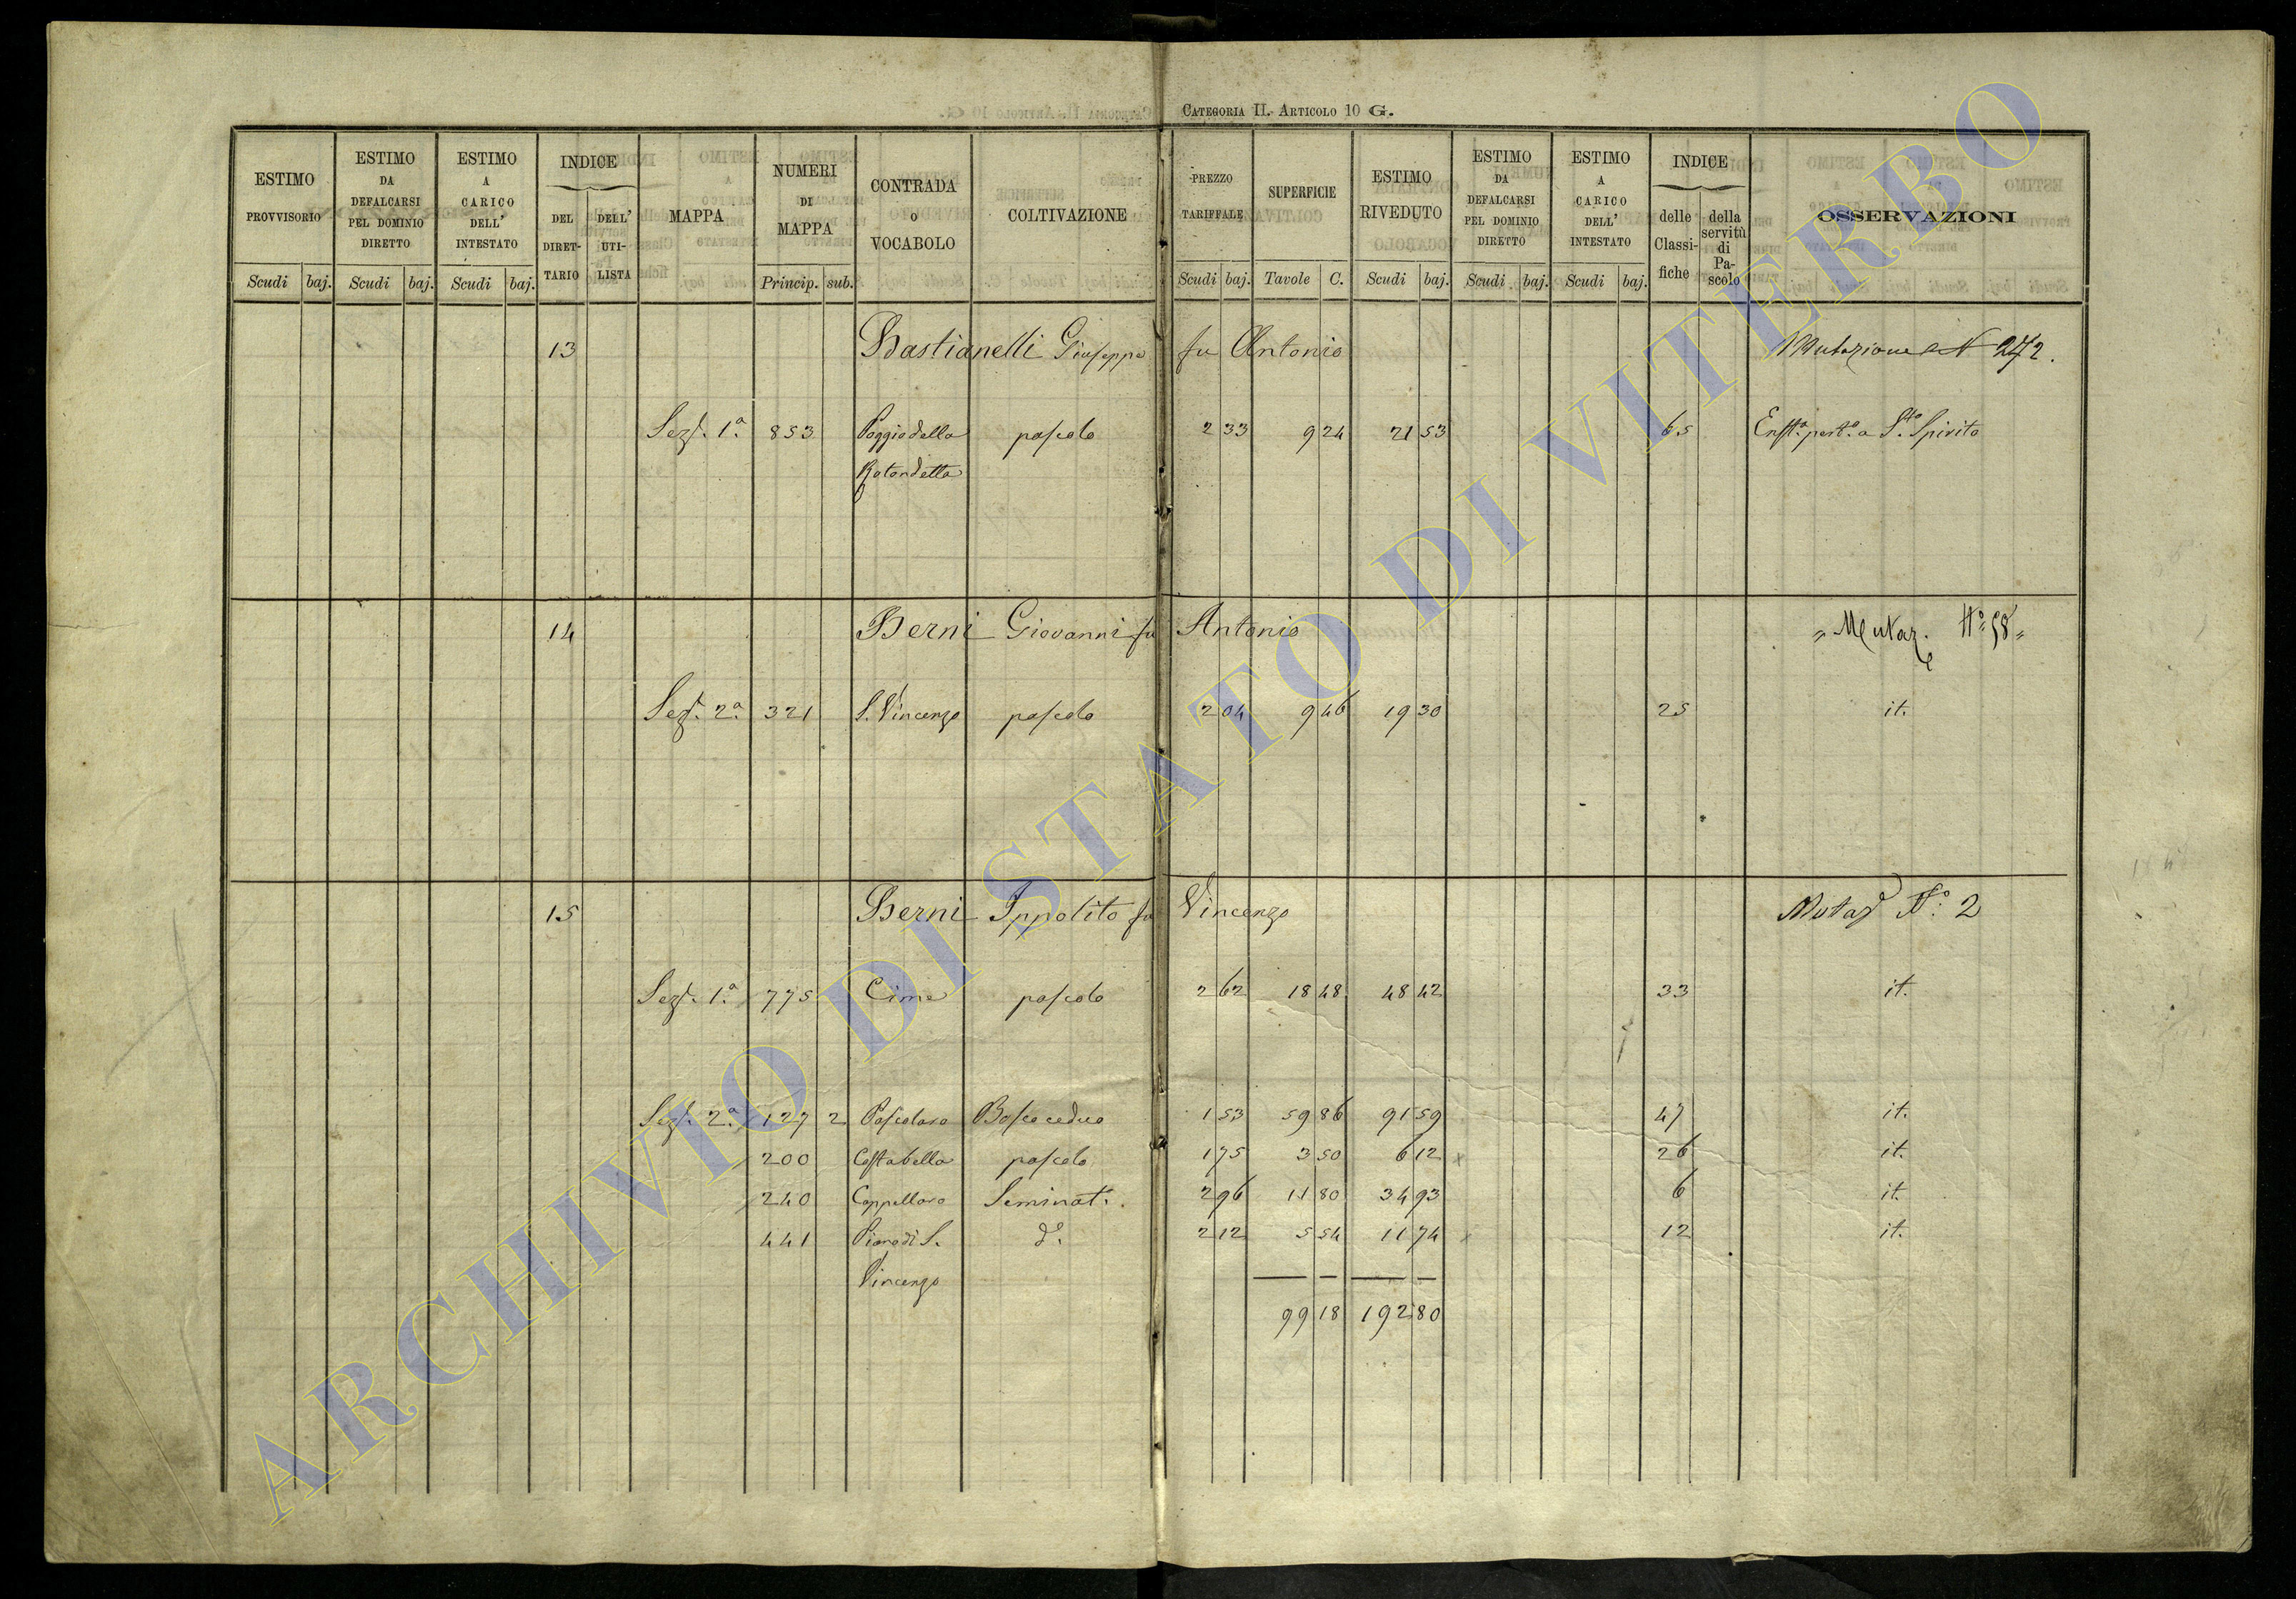 CATEGORIA II. ARTICOLO 10 G.
ESTIMO PROVVISORIO Scudi baj.
ESTIMO DA DEFALCARSI PEL DOMINIO DIRETTO Scudi baj.
ESTIMO A CARICO DELL' INTESTATO Scudi baj.
INDICE DEL DIRETTARIO DELL' UTILISTA
MAPPA
NUMERI DI MAPPA Princip. sub.
CONTRADA O VOCABOLO
COLTIVAZIONE
PREZZO TARIFFALE Scudi baj.
SUPERFICIE Tavole C.
ESTIMO RIVEDUTO Scudi baj.
ESTIMO DA DEFALCARSI PEL DOMINIO DIRETTO Scudi baj.
ESTIMO A CARICO DELL' INTESTATO Scudi baj.
INDICE delle Classifiche della servitù di Pascolo
OSSERVAZIONI
13 Bastianelli Giuseppe fu Antonio Mutazione N 272.
Sez. 1ª 853 Poggio della pascolo 2 33 9 24 21 53 65 Enft. pert. a S.to Spirito
Rotondetta
14 Berni Giovanni fu Antonio " Mutaz. N° 58 "
Sez. 2ª 321 S. Vincenzo pascolo 2 04 9 46 19 30 25 it.
15 Berni Ippolito fu Vincenzo Mutaz N° 2
Sez. 1ª 775 Cime pascolo 2 62 18 48 48 42 33 it.
Sez. 2ª 127 2 Pascolaro Bosco ceduo 1 53 59 86 91 59 47 it.
200 Costabella pascolo 1 75 3 50 6 12 x 26 it.
240 Cappellaro Seminat. 2 96 11 80 34 93 6 it.
441 Piano di S. d° 2 12 5 54 11 74 x 12 it.
Vincenzo
99 18 192 80
ARCHIVIO DI STATO DI VITERBO